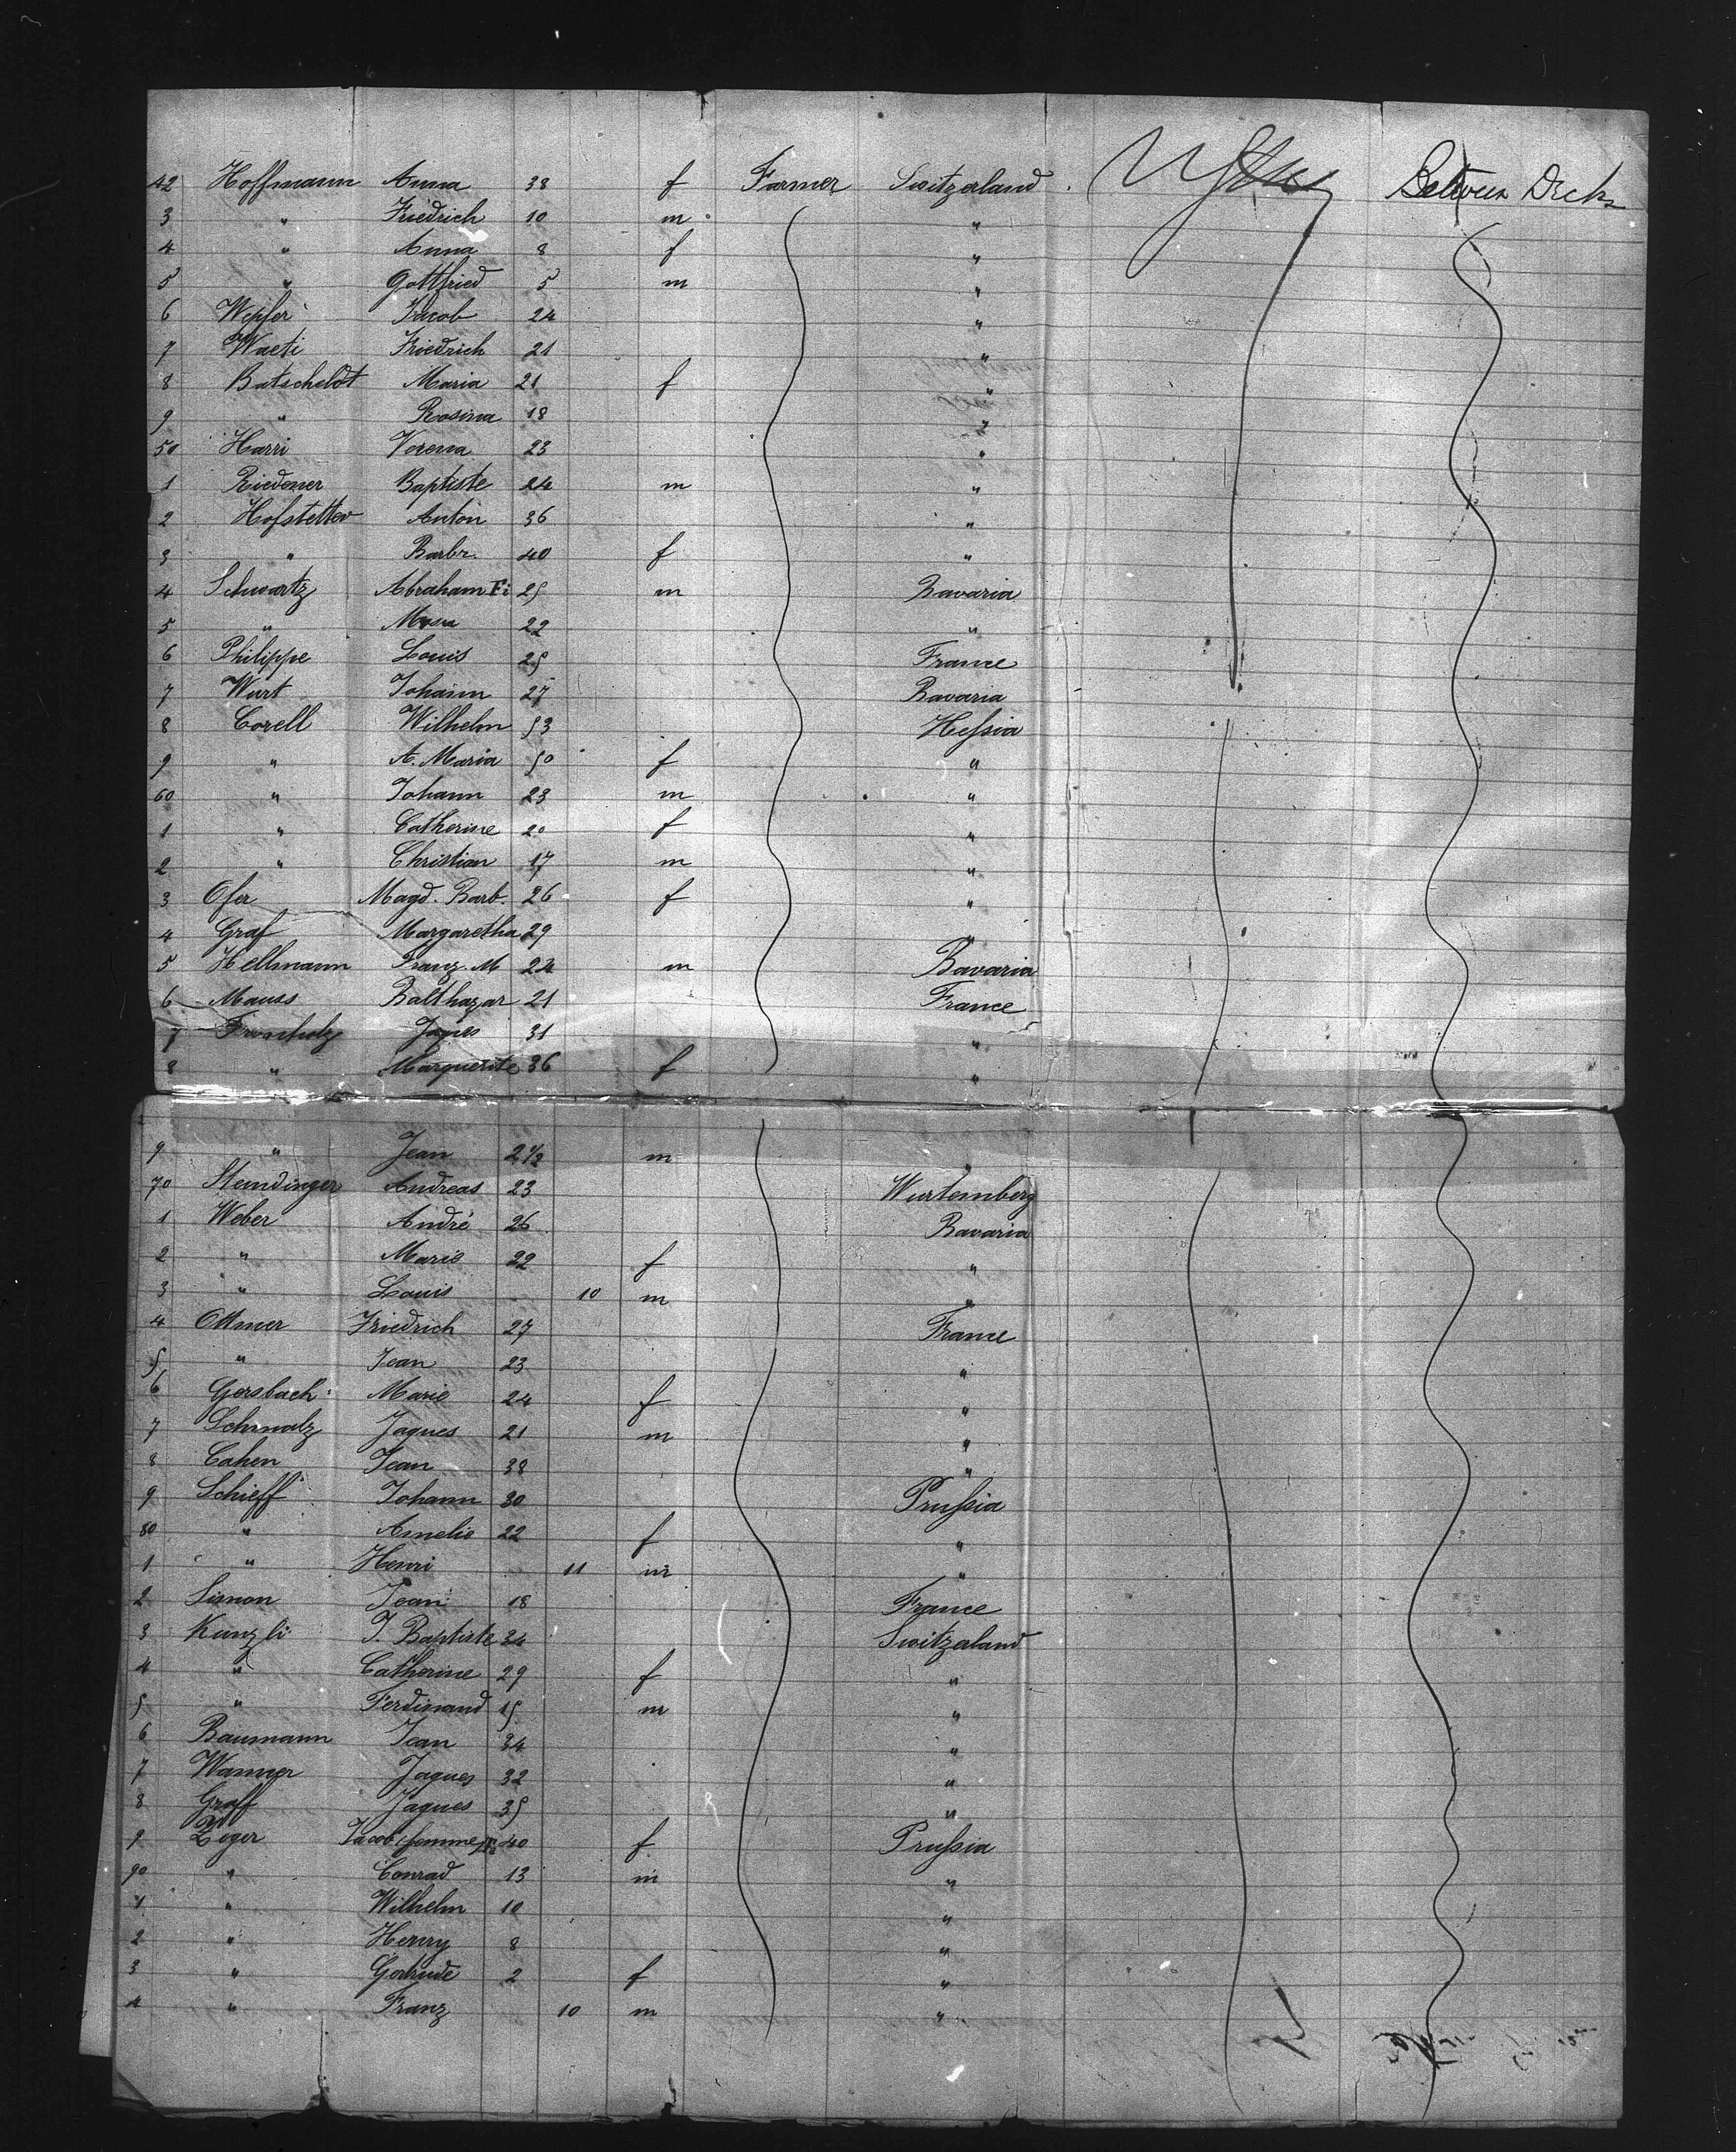 42 Hoffmann Anna 38 f Farmer Switzerland Between Decks
3 " Friedrich 10 m "
4 " Anna 8 f "
5 " Gottfried 5 m "
6 Wepfer Jacob 24 "
7 Waeti Friedrich 21 "
8 Batscheldt Maria 21 f "
9 " Rosina 18 "
50 Harri Verena 23 "
1 Riedener Baptiste 24 m "
2 Hofstetter Anton 36 "
3 " Barbr. 40 f "
4 Schwartz Abraham 25 m Bavaria
5 " 22 "
6 Philippe Louis 25 France
7 Wurt Johann 27 Bavaria
8 Corell Wilhelm 53 Heſsia
9 " A. Maria 50 f "
60 " Johann 23 m "
1 " Catherine 20 f "
2 " Christian 17 m "
3 Ofer Magd. Barb. 26 f "
4 Graf Margaretha 29 "
5 Hellmann Franz. M 24 m Bavaria
6 Mauss Balthazar 21 France
7 Fronholz 31 "
8 " Marguerite 36 f "
9 " Jean 2 1/2 m "
70 Steindinger Andreas 23 Wurtemberg
1 Weber André 26 Bavaria
2 " Marie 22 f "
3 " Louis 10 m "
4 Ottmer Friedrich 27 France
5 " Jean 23 "
6 Gersbach Marie 24 f "
7 Schmalz Jaques 21 m "
8 Cahen Jean 38 "
9 Schieff Johann 30 Pruſsia
80 " Amelie 22 f "
1 " Henri 11 m "
2 Simon Jean 18 France
3 Kunzli J. Baptiste 34 Switzerland
4 " Catherine 29 f "
5 " Ferdinand 15 m "
6 Baumann Jean 34 "
7 Wanner Jaques 32 "
8 Graff Jaques 35 "
9 Zeger Jacob (femme) 40 f Pruſsia
90 " Conrad 13 m "
1 " Wilhelm 10 "
2 " Henry 8 "
3 " Gertrude 2 f "
4 " Franz 10 m "